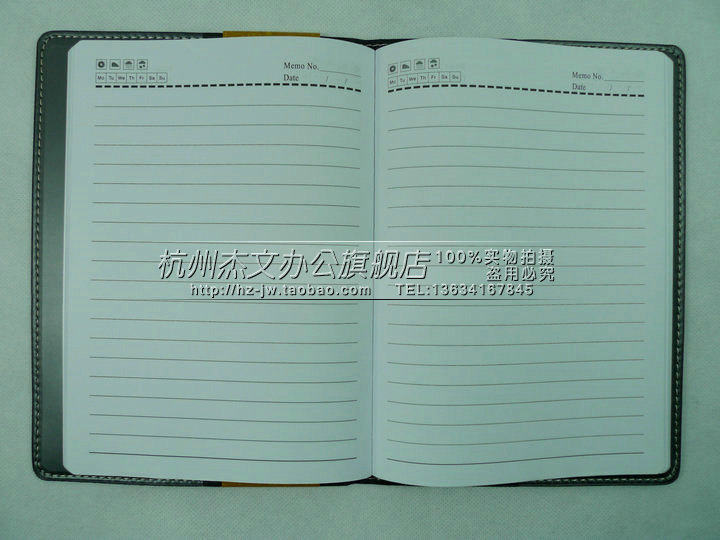 Memo No.
Date / /
Mo Tu We Th Fr Sa Su
Memo No.
Date / /
Mo Tu We Th Fr Sa Su
杭州杰文办公旗舰店 100%实物拍摄
盗用必究
http://hz-jw.taobao.com TEL:13634167845